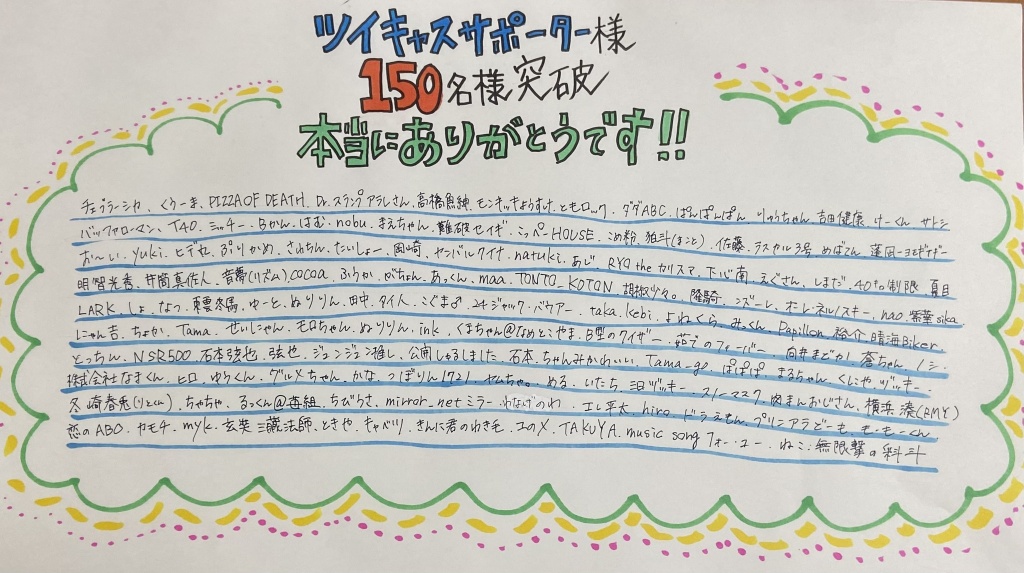 ツイキャスサポーター様
150名様突破
本当にありがとうです!!
チェブラーシカ、くうーま、PIZZA OF DEATH、Dr.スランプアラレさん、高橋 モンキッキょうすけ、ともロック、ダダABC、ぱんぱんぱん りゅうちゃん、吉田健康、けーくん サトシ
バッファローマン、TAO、ミッチー、Bかん、はむ、nobu、まえちゃん、難破セイギ、ミッパーHOUSE、こめ粉、狛斗(まこと)、佐藤、ラスカル3号、めばさん
おーい、yuki、ヒデ丸、ぷりかめ、さゆちん、たいしょー、岡崎、ヤンバルクイナ、natuki、あじ、RYO the カリスマ、下心南、えぐさん、しまだ、40to制限、夏目
明智光香、井筒真佐人、音夢(リズム)、COCOA、ふうか、がちょん、あっくん、maa、TONTO、KOTON、胡椒少々。、 nao、紫華sika
LARK、しょ、なつ、東雲冬馬、ゆーと、ぬりりん、田中、タイ人、こぐま♂、24ジャック・バウアー、taka、kebi、よねくら、みっくん、Papillon、裕介、晴海Biker
にゃん吉、ちょか、Tama、せいにゃん、モロちゃん、ぬりりん、ink、くまちゃん@なめとこやま、B型のクイザー、茹でのフィーバー、向井まどか、蒼ちゃん、ノシ
とっちん、NSR500、石本弦也、弦也、ジュンジュン推し、公開しゅるしました、石本、ちゃんみかわいい、Tama-go、ぱぱぱ、まるちゃん、くにや、ヅッキー
株式会社なまくん、ヒロ、ゆうくん、グルメちゃん、かな、つぼりん1721、ヤムちゃ。、める、いたち、三日ヅッキー、スノーマスク、肉まんおじさん、横浜 湊(AMと)
冬崎春兎(りとくん)、ちゃちゃ、るっくん@苺組、ちびうさ、mirror_netミラー、わなげのわ、エレ平太、hiro、ドラえもん、プリンアラどーも、も・も～くん
恋のABO、カモチ、myk、玄奘三蔵法師、ときや、キャベツ、きんに君のわき毛、ユのメ、TAKUYA、music song フォー・ユー、ねこ、無限撃の料斗